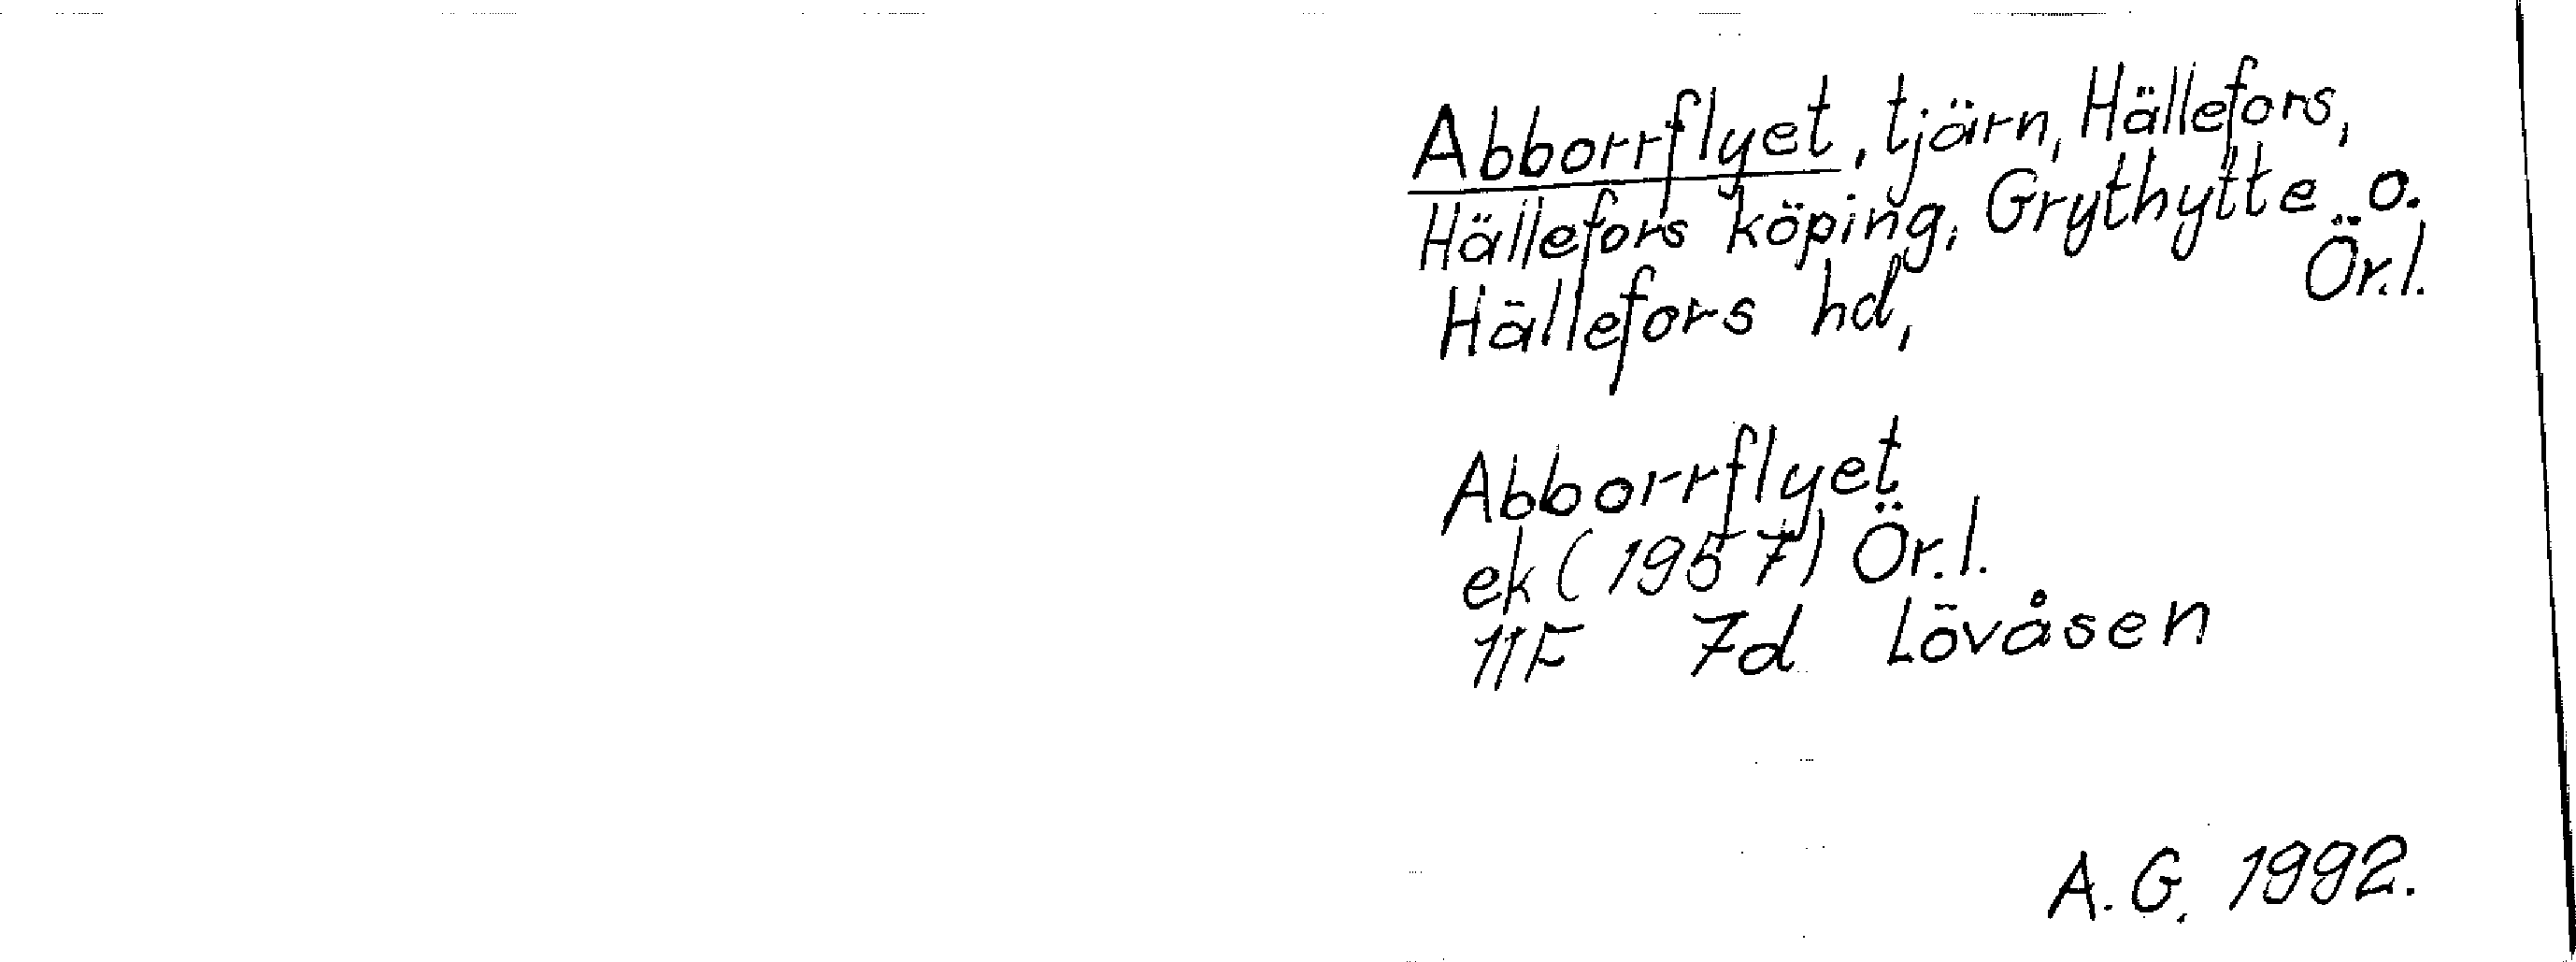 Abborrflyet, tjärn, Hällefors,
Hällefors köping, Grythytte o.
Hällefors hd, Ör.l.
Abborrflyet
ek (1957) Ör.l.
11F 7d Lövåsen
A.G. 1992.